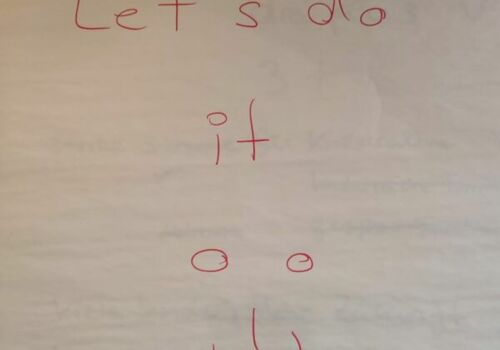 Let s do
it